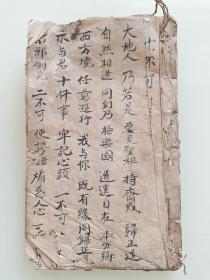 十不可
大地人 乃若是 要見聖祖 持齋戒 歸正道
自然相逢 同到乃 極樂國 逍遙自在 本分鄉
西方境 任意遊行 我与你 既有緣 同歸正
示与君 十件事 牢記心頭 一不可
邪 倒見 二不可 使 煽惑人心